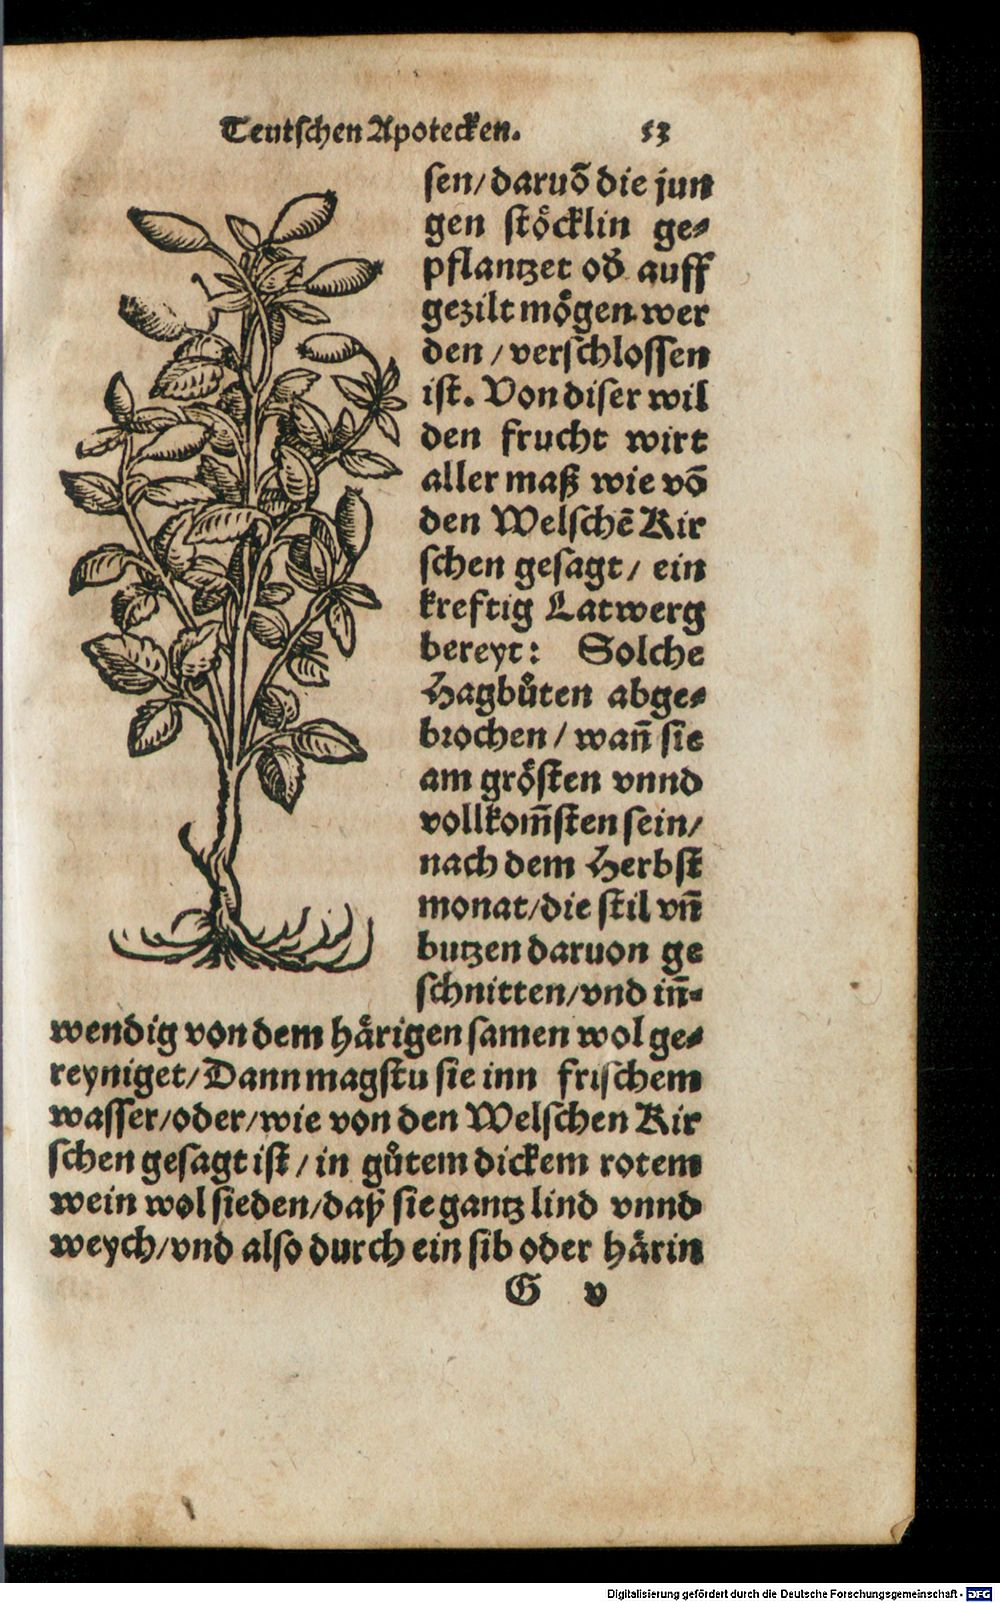 Teutschen Apotecken. 53
sen/ daruō die jun
gen stöcklin ge-
pflantzet od̄ auff
gezilt mögen wer
den / verschlossen
ist. Von diser wil
den frucht wirt
aller maß wie vō
den Welschē Kir
schen gesagt/ ein
kreftig Latwerg
bereyt: Solche
Hagbůten abge-
brochen / wañ sie
am grösten vnnd
vollkom̄sten sein/
nach dem Herbst
monat/die stil vñ
butzen daruon ge
schnitten/vnd iñ-
wendig von dem hårigen samen wol ge-
reyniget/Dann magstu sie inn frischem
wasser/oder/wie von den Welschen Kir
schen gesagt ist / in gůtem dickem rotem
wein wol sieden/daß sie gantz lind vnnd
weych/vnd also durch ein sib oder hårin
G v
Digitalisierung gefördert durch die Deutsche Forschungsgemeinschaft - DFG